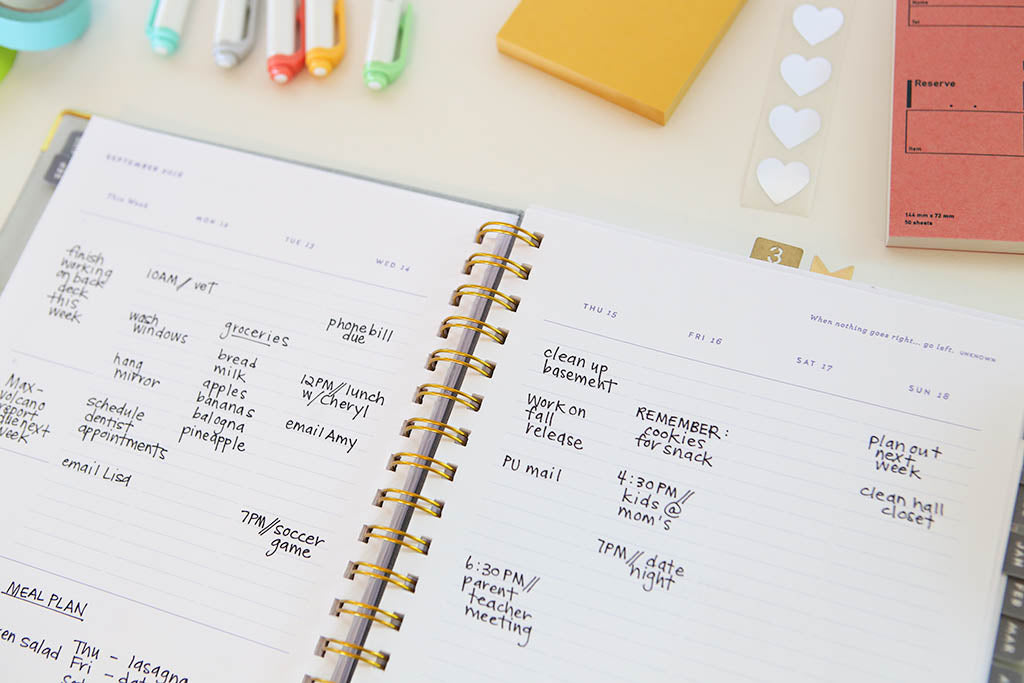 Name
Tel
Reserve
Item
144 mm x 72 mm
50 sheets
3
SEP
SEPTEMBER 2016
This Week
MON 12
TUE 13
WED 14
finish
working
on back
deck
this
week
Max-
volcano
report
due next
week
10AM// vet
wash
windows
hang
mirror
schedule
dentist
appointments
email Lisa
groceries
bread
milk
apples
bananas
balogna
pineapple
phone bill
due
12PM// lunch
w/cheryl
email Amy
7PM//soccer
game
MEAL PLAN
ken salad
Thu - lasagna
Fri - dat
When nothing goes right... go left. UNKNOWN
THU 15
FRI 16
SAT 17
SUN 18
clean up
basement
work on
fall
release
PU mail
6:30 PM//
parent
teacher
meeting
REMEMBER:
cookies
for snack
4:30 PM//
kids @
mom's
7PM// date
night
plan out
next
week
clean hall
closet
JAN
FEB
MAR